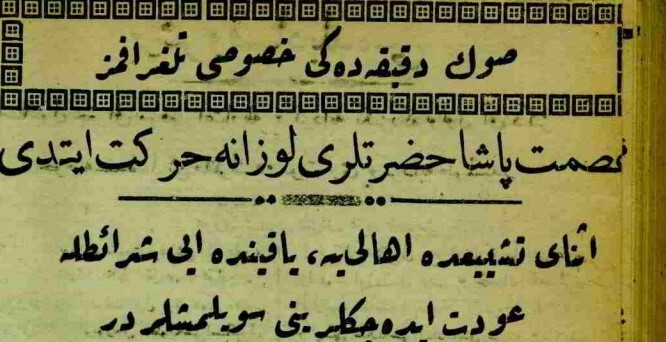 صوك دقيقه ده‌كى خصوصى تلغرافمز
عصمت پاشا حضرتلرى لوزانه حركت ايتدى
اثناى تشييعده اهالى‌يه، ياقينده ايى شرائطله
عودت ايده‌جكلرينى سويلمشلردر